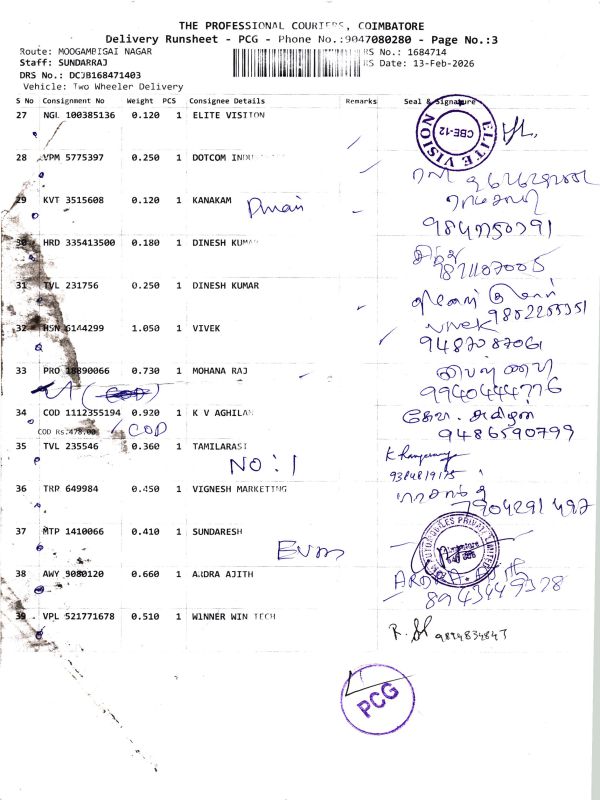 THE PROFESSIONAL COURIERS, COIMBATORE
Delivery Runsheet - PCG - Phone No.:9047080280 - Page No.:3
Route: MOOGAMBIGAI NAGAR RS No.: 1684714
Staff: SUNDARRAJ RS Date: 13-Feb-2026
DRS No.: DCJB168471403
Vehicle: Two Wheeler Delivery
S No Consignment No Weight PCS Consignee Details Remarks Seal & Signature
27 NGL 100385136 0.120 1 ELITE VISITON
ELITE VISION CBE-12
28 VPM 5775397 0.250 1 DOTCOM
29 KVT 3515608 0.120 1 KANAKAM
30 HRD 335413500 0.180 1 DINESH KUMAR
31 TVL 231756 0.250 1 DINESH KUMAR
32 HSN 6144299 1.050 1 VIVEK VIVEK
9487087061
33 PRO 18890066 0.730 1 MOHANA RAJ
9940444776
(COD)
34 COD 1112355194 0.920 1 K V AGHILAN
COD Rs.478.00 COD 9486590799
35 TVL 235546 0.360 1 TAMILARASI
NO: 1
9384819175
36 TRP 649984 0.450 1 VIGNESH MARKETING
7904291497
37 MTP 1410066 0.410 1 SUNDARESH
AUTOMOBILES PRIVATE LIMITED
38 AWY 9080120 0.660 1 ARDRA AJITH
8943449328
39 VPL 521771678 0.510 1 WINNER WIN TECH
9894834847
PCG